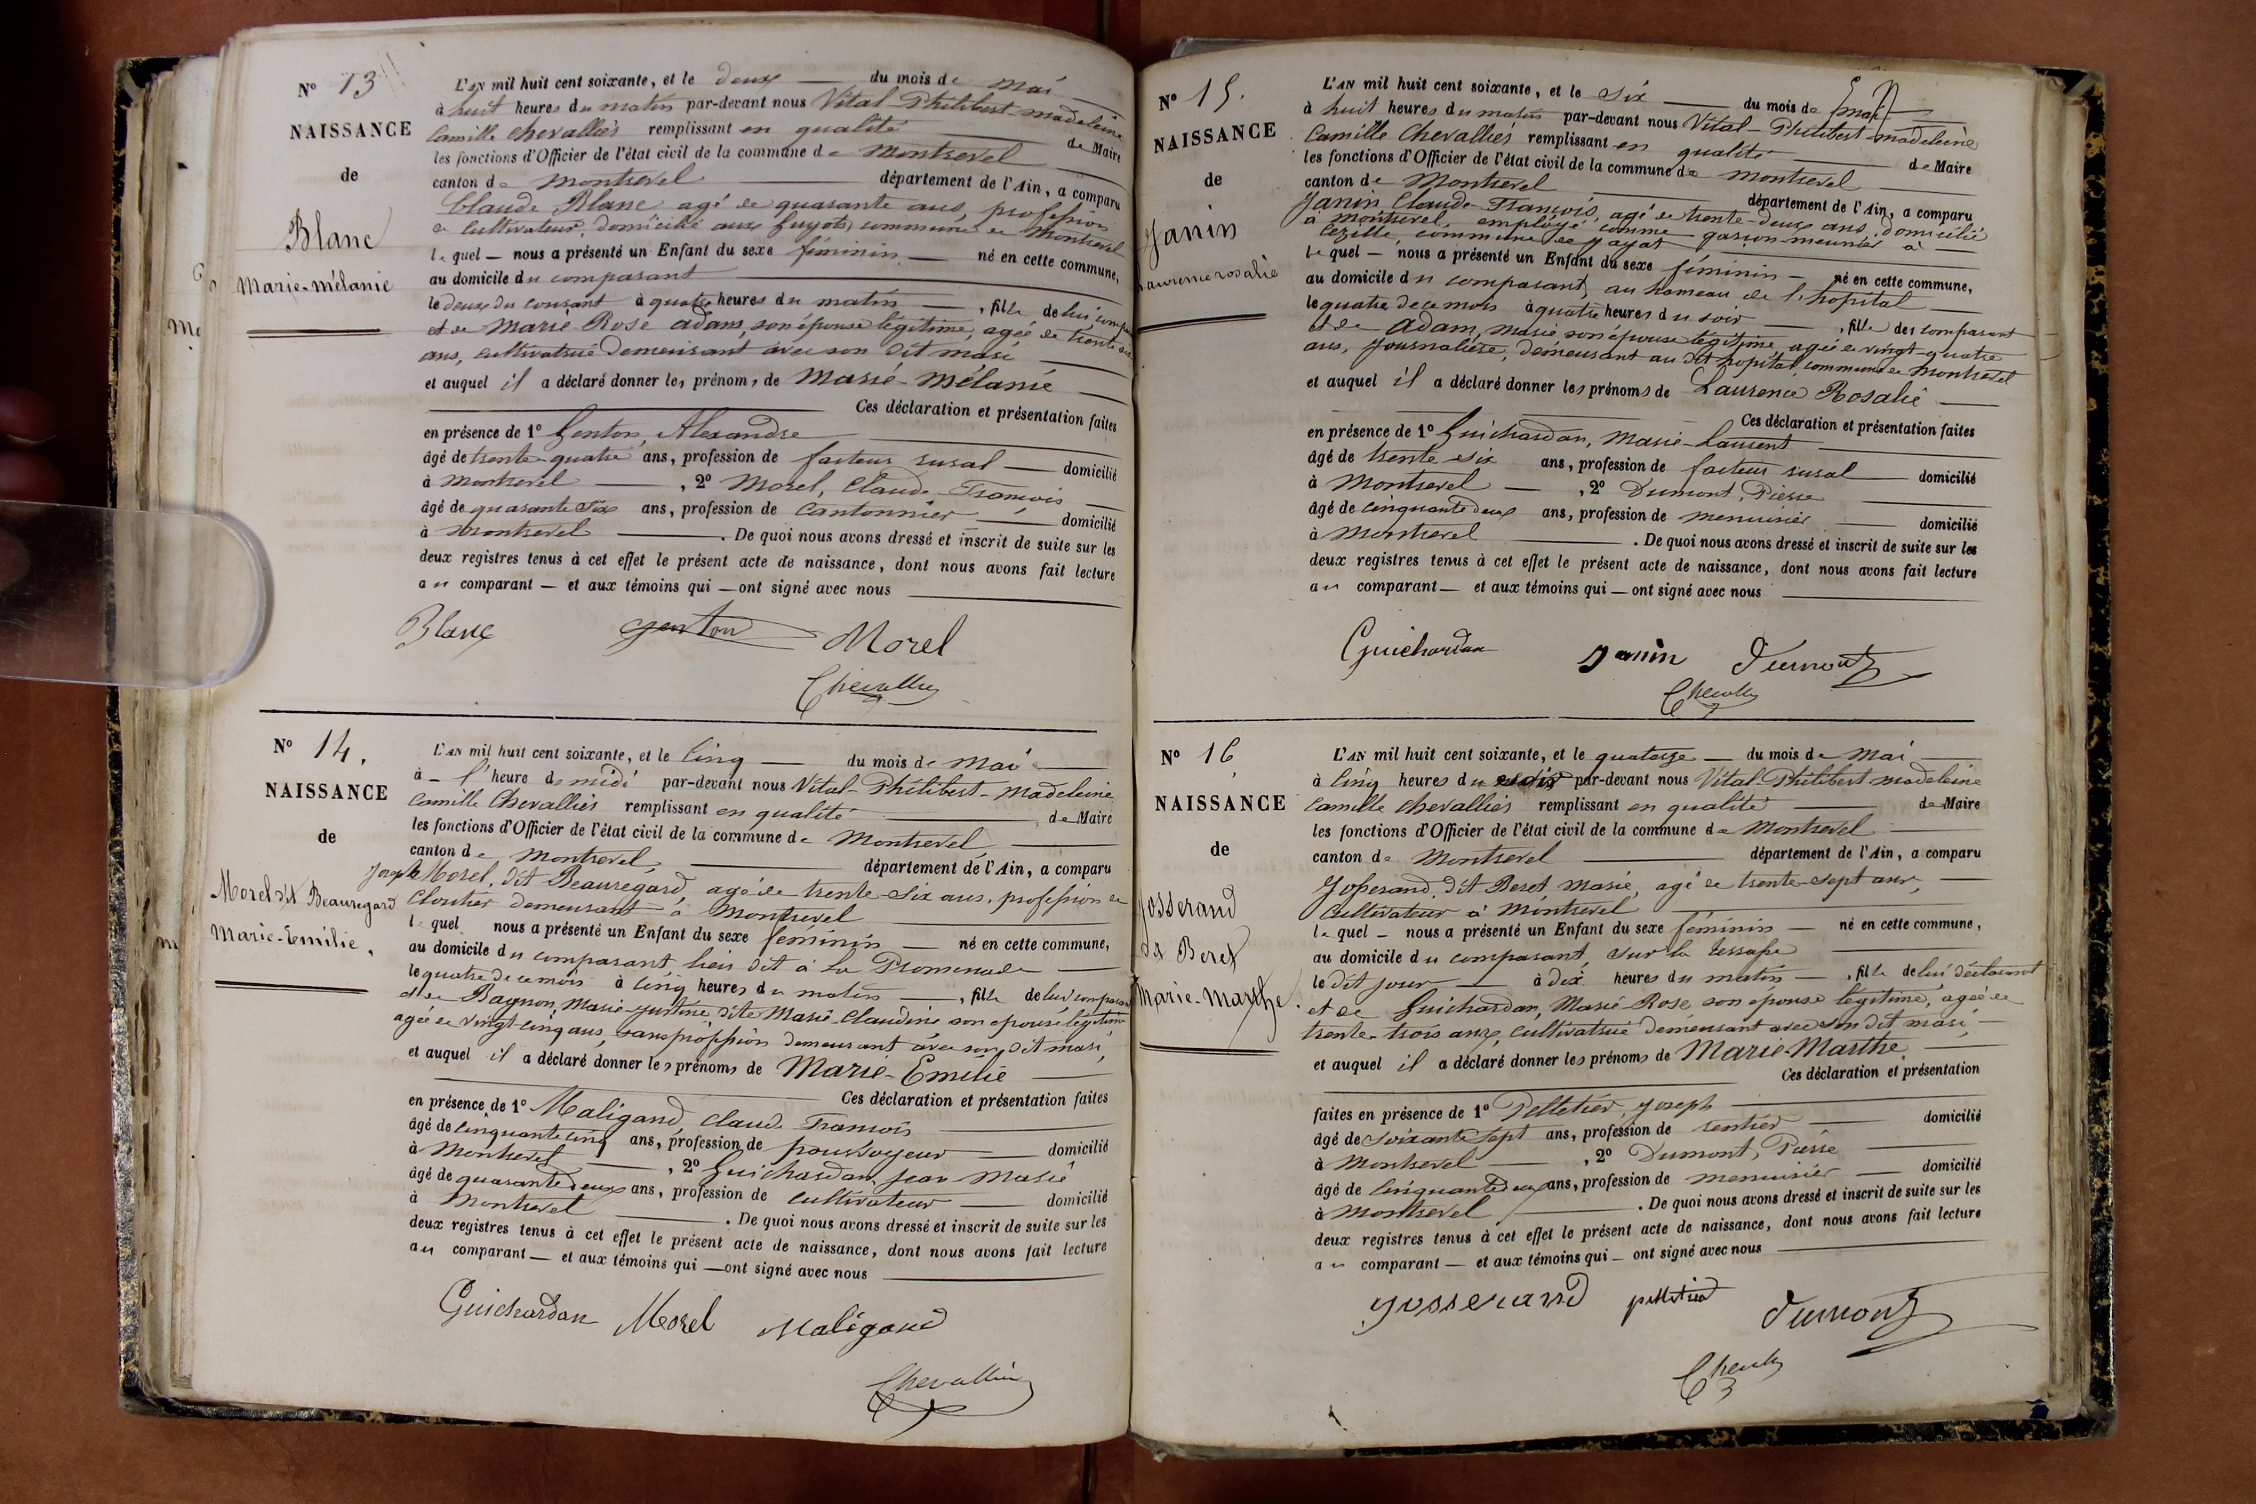 N° 13
NAISSANCE
de
Blanc
Marie-mélanie
L'AN mil huit cent soixante, et le deux du mois de Mai
à huit heures du matin par-devant nous Vital-Philibert-madeleine
Camille Chevallier remplissant en qualité de Maire
les fonctions d'Officier de l'état civil de la commune de Montrevel
canton de Montrevel département de l'Ain, a comparu
Claude Blanc agé de quarante ans, profession
de cultivateur, domicilié aux guyots, commune de Montrevel
lequel — nous a présenté un Enfant du sexe féminin — né en cette commune,
au domicile du comparant
le deux du courant à quatre heures du matin — , fille de lui comparant
et de Marie-Rose adam, son épouse légitime, agée de trente
ans, cultivatrice demeurant avec son dit mari
et auquel il a déclaré donner les prénoms de Marie-Mélanie
Ces déclaration et présentation faites
en présence de 1° Genton, Alexandre
âgé de trente-quatre ans, profession de facteur rural — domicilié
à Montrevel — , 2° Morel, Claude François
âgé de quarante six ans, profession de Cantonnier — domicilié
à Montrevel — . De quoi nous avons dressé et inscrit de suite sur les
deux registres tenus à cet effet le présent acte de naissance, dont nous avons fait lecture
au comparant — et aux témoins qui — ont signé avec nous
Blanc genton Morel
Chevallier
N° 14.
NAISSANCE
de
Morel dit Beauregard
Marie-Emilie.
L'AN mil huit cent soixante, et le cinq — du mois de Mai
à — l'heure de midi par-devant nous Vital-Philibert-Madeleine
Camille Chevallier remplissant en qualité de Maire
les fonctions d'Officier de l'état civil de la commune de Montrevel
canton de Montrevel département de l'Ain, a comparu
Joseph Morel, dit Beauregard, agé de trente-six ans, profession de
Cloutier demeurant à Montrevel
lequel nous a présenté un Enfant du sexe féminin — né en cette commune,
au domicile du comparant lieu dit à la Promenade
le quatre de ce mois à cinq heures du matin — , fille de lui comparant
et de Bagnon, Marie-justine dite Marie-Claudine son épouse légitime
agée de vingt-cinq ans, sans profession demeurant avec son dit mari,
et auquel il a déclaré donner les prénoms de Marie-Emilie
Ces déclaration et présentation faites
en présence de 1° Maligand, Claude François
âgé de cinquante cinq ans, profession de pourvoyeur — domicilié
à Montrevel — , 2° Guichardan jean Marie
âgé de quarante deux ans, profession de cultivateur — domicilié
à Montrevel — . De quoi nous avons dressé et inscrit de suite sur les
deux registres tenus à cet effet le présent acte de naissance, dont nous avons fait lecture
au comparant — et aux témoins qui — ont signé avec nous
Guichardan Morel Maligand
Chevallier
N° 15.
NAISSANCE
de
Janin
Laurence rosalie
L'AN mil huit cent soixante, et le six — du mois de mai
à huit heures du matin par-devant nous Vital-Philibert-madeleine
Camille Chevallier remplissant en qualité — de Maire
les fonctions d'Officier de l'état civil de la commune de Montrevel
canton de Montrevel département de l'Ain, a comparu
Janin Claude-François, agé de trente-deux ans, domicilié
à Montrevel employé comme garçon-meunier à
Cezille, commune de jayat
lequel — nous a présenté un Enfant du sexe féminin — né en cette commune,
au domicile du comparant, au hameau de l'hopital
le quatre de ce mois à quatre heures du soir — , fille de comparant
et de Adam, Marie, son épouse légitime agée de vingt-quatre
ans, journalière, demeurant au dit hopital commune de Montrevel
et auquel il a déclaré donner les prénoms de Laurence Rosalie
Ces déclaration et présentation faites
en présence de 1° Guichardan, Marie-Laurent
âgé de trente six ans, profession de facteur rural — domicilié
à Montrevel — , 2° Dumont, Pierre
âgé de cinquante deux ans, profession de menuisier — domicilié
à Montrevel — . De quoi nous avons dressé et inscrit de suite sur les
deux registres tenus à cet effet le présent acte de naissance, dont nous avons fait lecture
au comparant — et aux témoins qui — ont signé avec nous
Guichardan Janin Dumont
N° 16
NAISSANCE
de
Josserand
dit Beret
Marie-Marthe.
L'AN mil huit cent soixante, et le quatorze — du mois de Mai
à cinq heures du soir par-devant nous Vital-Philibert-madeleine
Camille Chevallier remplissant en qualité — de Maire
les fonctions d'Officier de l'état civil de la commune de Montrevel
canton de Montrevel département de l'Ain, a comparu
Josserand dit Beret Marie, agé de trente-sept ans,
Cultivateur à Montrevel
lequel — nous a présenté un Enfant du sexe féminin — né en cette commune,
au domicile du comparant, sur la
le dit jour — à dix heures du matin — , fille de lui déclarant
et de Guichardan, Marie-Rose, son épouse légitime, agée de
trente-trois ans, cultivatrice demeurant avec son dit mari
et auquel il a déclaré donner les prénoms de Marie-Marthe
Ces déclaration et présentation
faites en présence de 1° Pelletier, joseph
âgé de soixante sept ans, profession de rentier — domicilié
à Montrevel — , 2° Dumont, Pierre
âgé de cinquante deux ans, profession de menuisier — domicilié
à Montrevel — . De quoi nous avons dressé et inscrit de suite sur les
deux registres tenus à cet effet le présent acte de naissance, dont nous avons fait lecture
au comparant — et aux témoins qui — ont signé avec nous
josserand pelletier Dumont